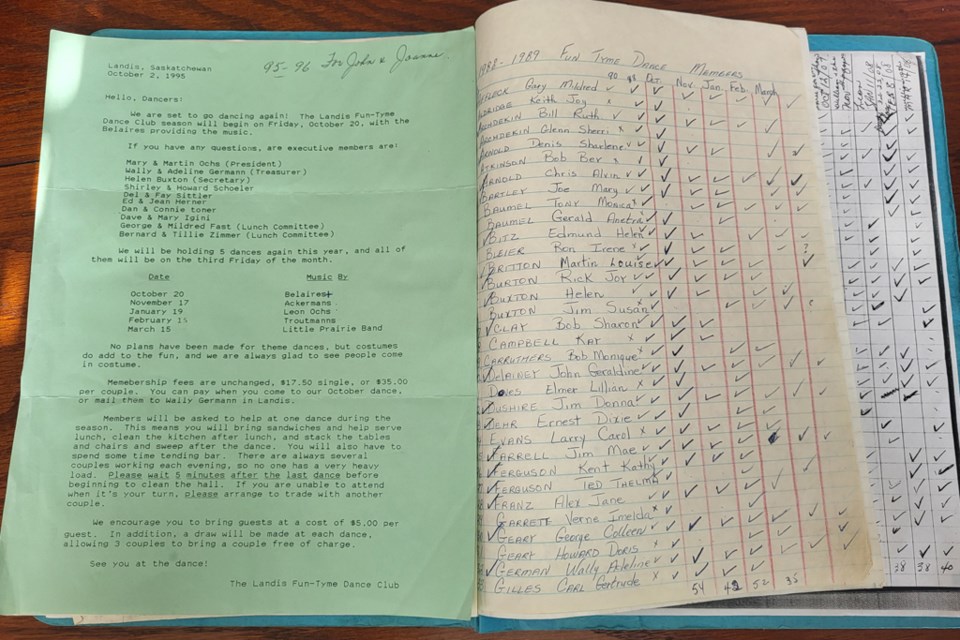 95-96 For John & Joanne
Landis, Saskatchewan
October 2, 1995
Hello, Dancers!
We are set to go dancing again! The Landis Fun-Tyme
Dance Club season will begin on Friday, October 20, with the
Belaires providing the music.
If you have any questions, are executive members are:
Mary & Martin Ochs (President)
Wally & Adeline Germann (Treasurer)
Helen Buxton (Secretary)
Shirley & Howard Schoeler
Del & Fay Sittler
Ed & Jean Herner
Dan & Connie toner
Dave & Mary Igini
George & Mildred Fast (Lunch Committee)
Bernard & Tillie Zimmer (Lunch Committee)
We will be holding 5 dances again this year, and all of
them will be on the third Friday of the month.
Date Music By
October 20 Belaires
November 17 Ackermans
January 19 Leon Ochs
February 15 Troutmanns
March 15 Little Prairie Band
No plans have been made for theme dances, but costumes
do add to the fun, and we are always glad to see people come
in costume.
Memebership fees are unchanged, $17.50 single, or $35.00
per couple. You can pay when you come to our October dance,
or mail them to Wally Germann in Landis.
Members will be asked to help at one dance during the
season. This means you will bring sandwiches and help serve
lunch, clean the kitchen after lunch, and stack the tables
and chairs and sweep after the dance. You will also have to
spend some time tending bar. There are always several
couples working each evening, so no one has a very heavy
load. Please wait 5 minutes after the last dance before
beginning to clean the hall. If you are unable to attend
when it's your turn, please arrange to trade with another
couple.
We encourage you to bring guests at a cost of $5.00 per
guest. In addition, a draw will be made at each dance,
allowing 3 couples to bring a couple free of charge.
See you at the dance!
The Landis Fun-Tyme Dance Club
1988-1989 Fun Tyme Dance Members
Oct. Nov. Jan. Feb. March
Gary Mildred
Keith Joy
Bill Ruth
Glenn Sherri
Arnold Denis Sharlene
Atkinson Bob Bev
Arnold Chris Alvin
Bartley Joe Mary
Baumel Tony Monica
Baumel Gerald Anetra
Bitz Edmund Helen
Bleier Ron Irene
Britton Martin Louise
Burton Rick Joy
Buxton Helen
Buxton Jim Susan
Clay Bob Sharon
Campbell Kay
Carruthers Bob Monique
Delainey John Geraldine
Elmer Lillian
Dushire Jim Donna
Ernest Dixie
Evans Larry Carol
Farrell Jim Mae
Ferguson Kent Kathy
Ferguson Ted Thelma
Franz Alex Jane
Garrett Verne Imelda
Geary George Colleen
Geary Howard Doris
German Wally Adeline
Gilles Carl Gertrude
54 42 52 35
38 38 40